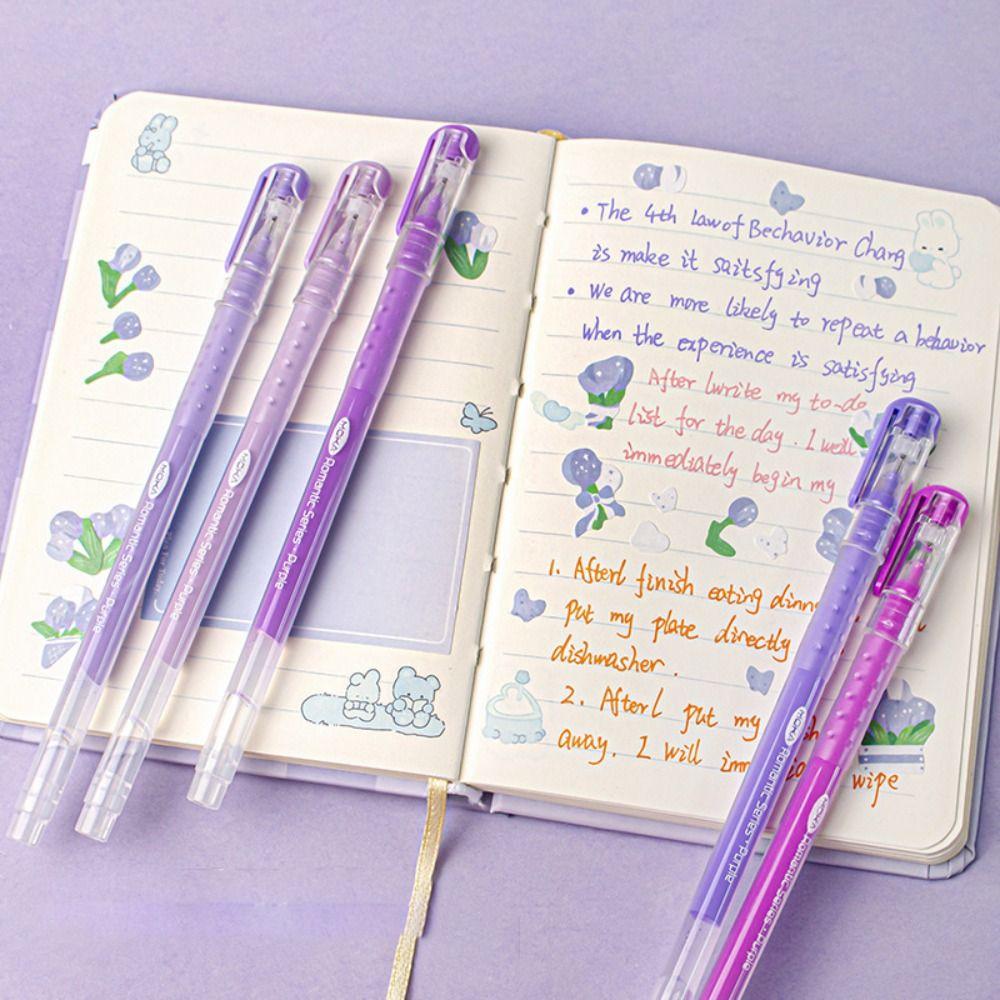 • The 4th law of Bechavior Chang
is make it saitsfying
• We are more likely to repeat a behavior
when the experience is satisfying
After lwrite my to-do
list for the day. I well
immediately begin my
1. Afterl finish eating dinn
put my plate directly
dishwasher.
2. Afterl put my
away, I will imm wipe
MOKA Romantic Series · Purple
MOKA Romantic Series · Purple
MOKA Romantic Series · Purple
MOKA Romantic Series · Purple
MOKA Romantic Series · Purple